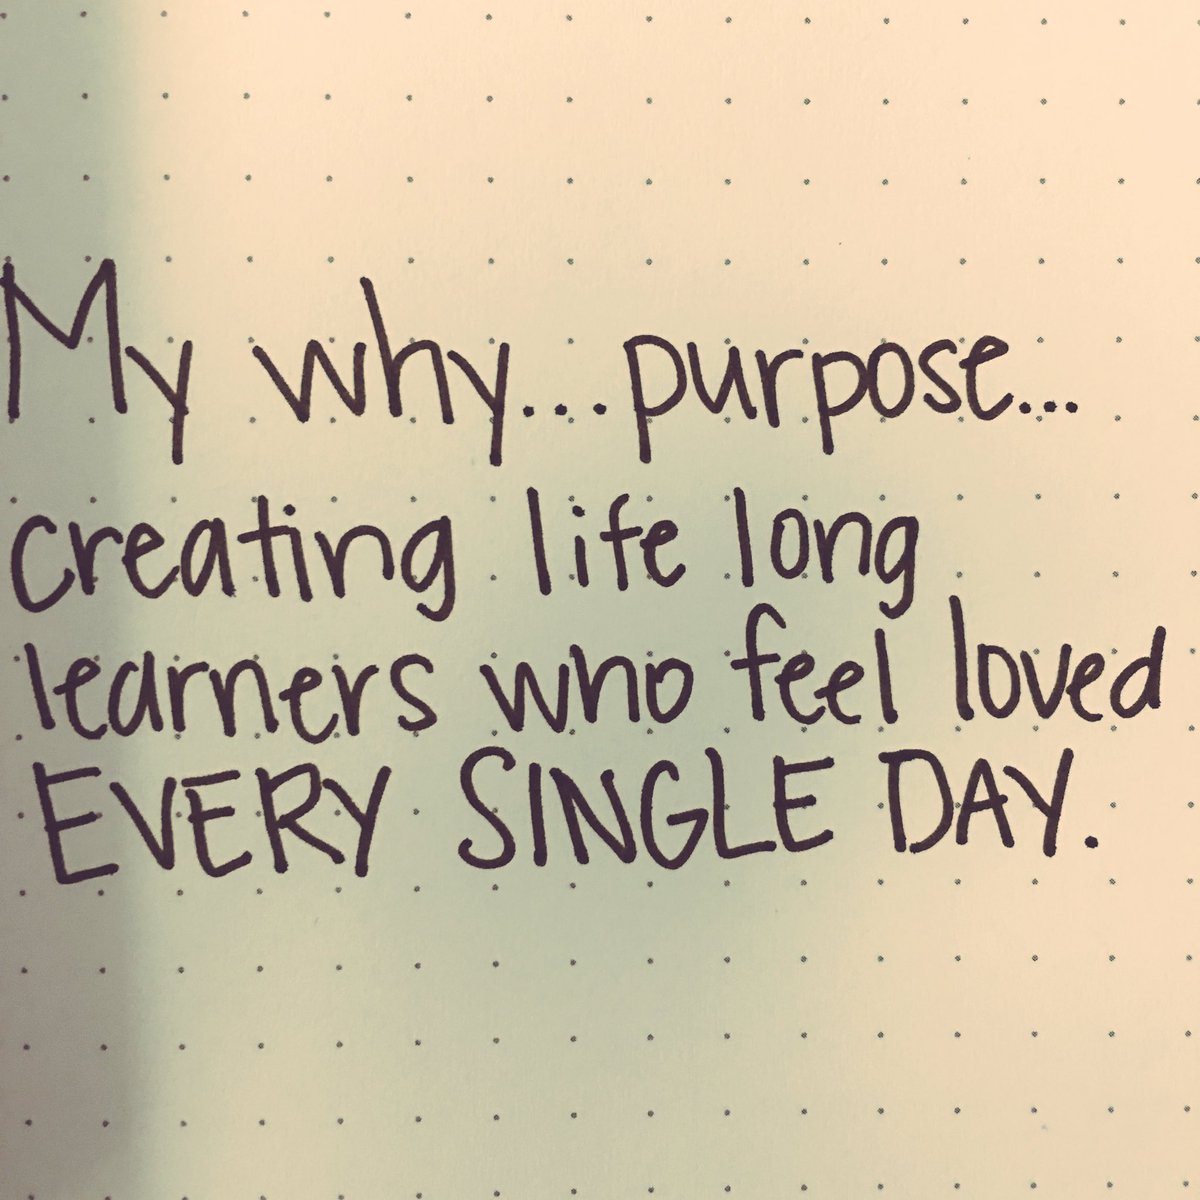 My why...purpose...
creating life long
learners who feel loved
EVERY SINGLE DAY.